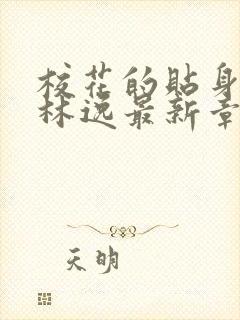 校花的贴身
林逸最新章
天明